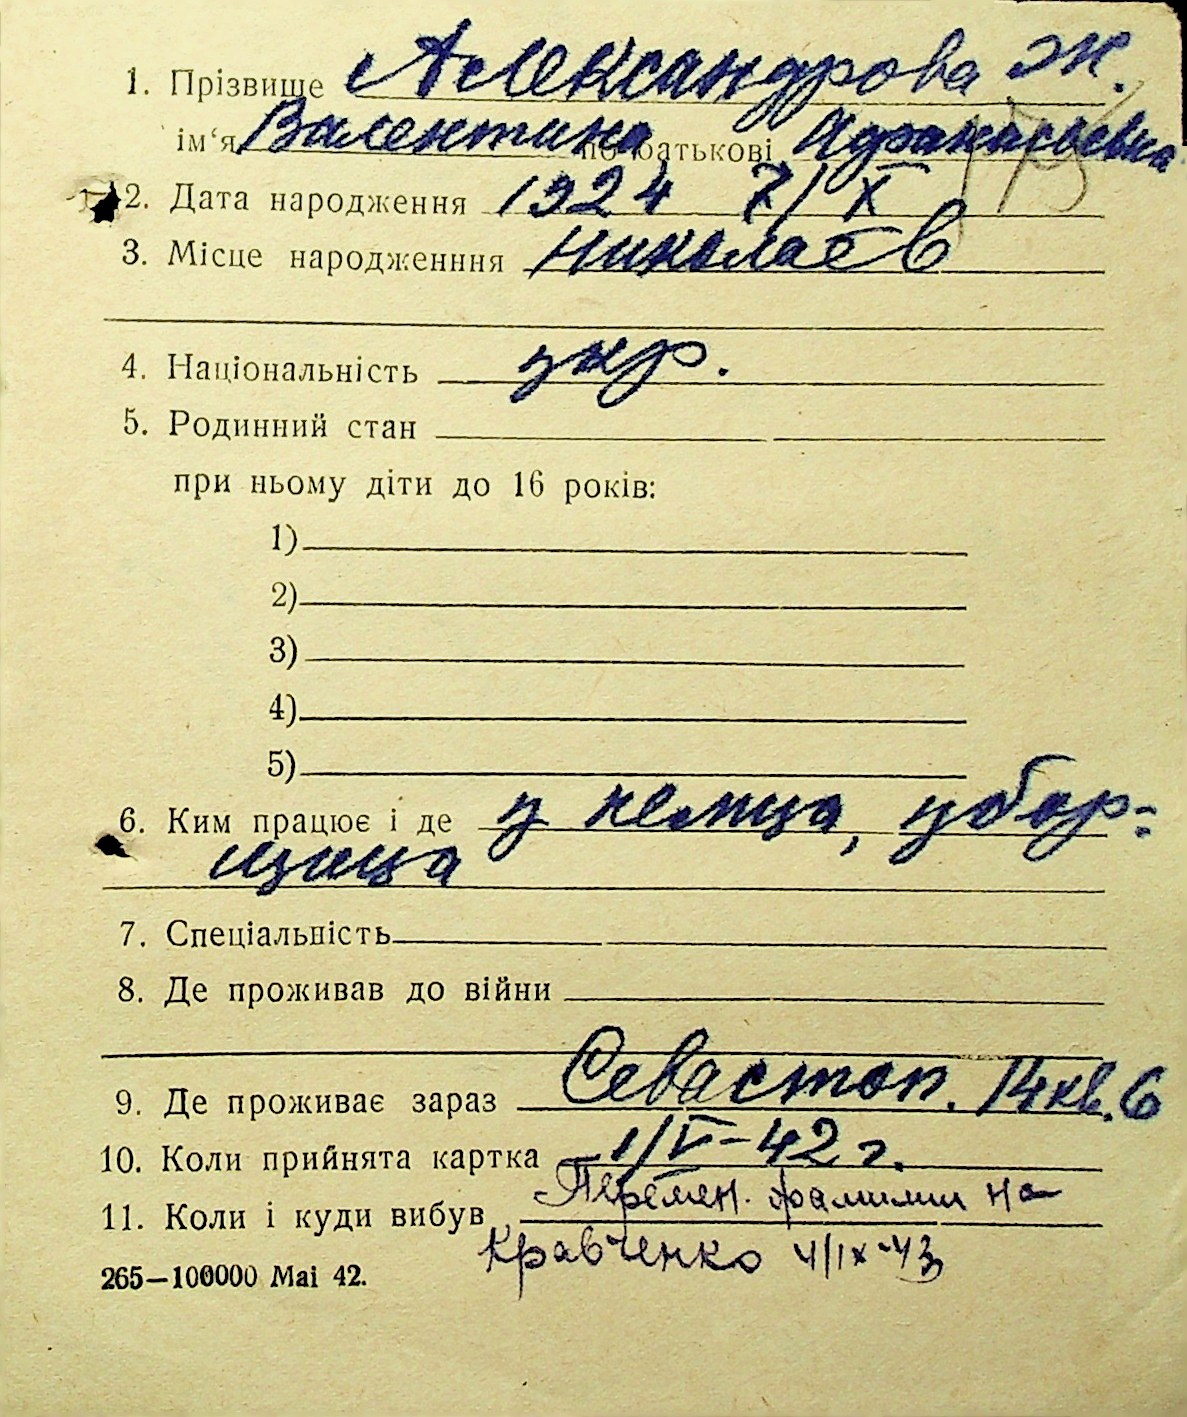 1. Прізвище Александрова Ж.
ім‘я Валентина по батькові Афанасьевна
2. Дата народження 1924 7/X
3. Місце народженння Николаев
4. Національність укр.
5. Родинний стан
при ньому діти до 16 років:
1)
2)
3)
4)
5)
6. Ким працює і де у немца, убор-
щица
7. Спеціальність
8. Де проживав до війни
9. Де проживає зараз Севастоп. 14 кв. 6
10. Коли прийнята картка 1/V-42 г.
11. Коли і куди вибув Перемен. фамилии на
Кравченко 4/IX-43
265—100000 Mai 42.